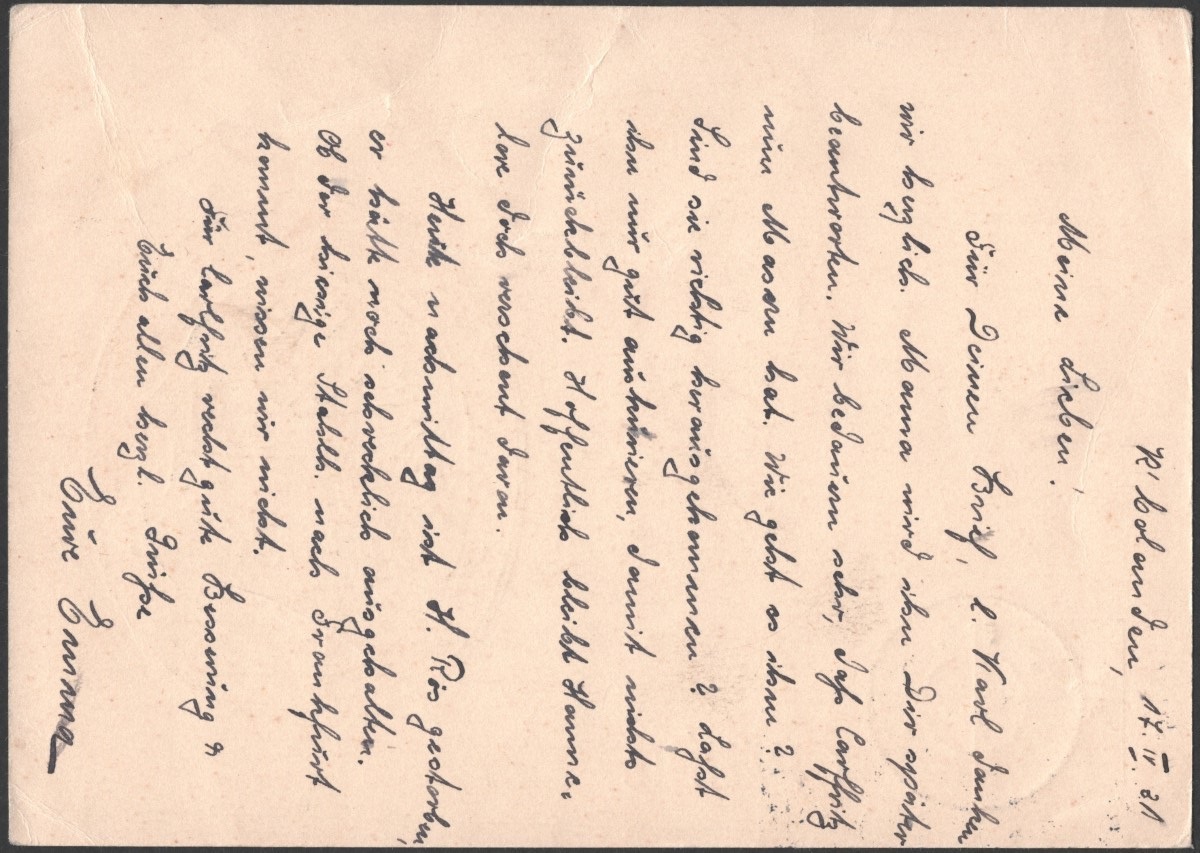 K'bolanden, 17. IV. 31
Meine Lieben!
Für Deinen Brief, l. Karl danken
wir herzlich. Mama wird ihn Dir später
beantworten. Wir bedauern sehr, daß Carlfritz
nun Masern hat. Wie geht es ihm?
Sind sie richtig herausgekommen? Laßt
ihn nur gut auskurieren, damit nichts
zurückbleibt. Hoffentlich bleibt Hanne-
lore doch verschont davon.
Heute nachmittag ist H. Rös gestorben,
er hätte noch schrecklich ausgehalten.
Ob der hiesige Stabllt. nach Frankfurt
kommt, wissen wir nicht.
Für Carlfritz recht gute Besserung &
Euch allen herzl. Grüße
Eure Emma